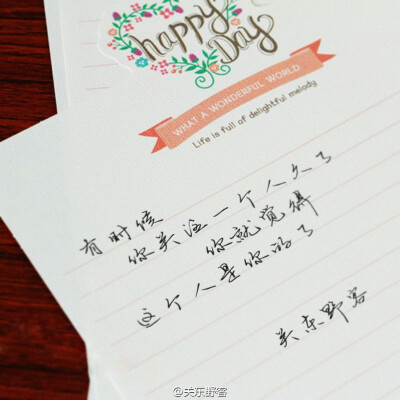 happy
Day
WHAT A WONDERFUL WORLD
Life is full of delightful melody
有时候
你关注一个人久了
你就觉得
这个人是你的了
关东野客
@关东野客